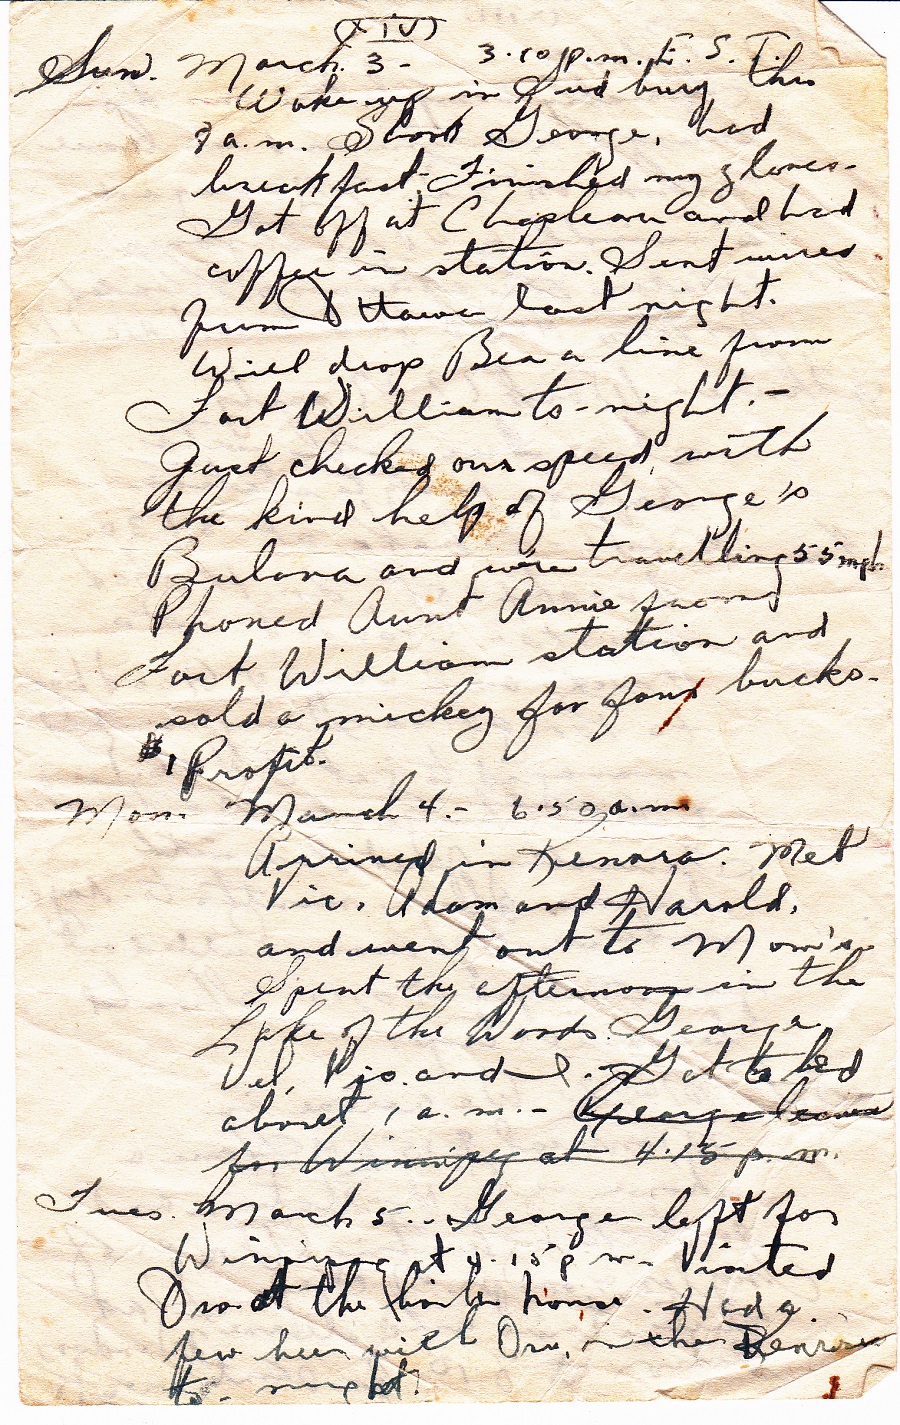 (XIV)
Sun. March. 3 - 3.10 p.m. E. S. T.
Woke up in Sudbury this
9 a.m. Shook George, had
breakfast. Finished my gloves.
Got off at Chapleau and had
coffee in station. Sent wires
from Ottawa last night.
Will drop Bea a line from
Fort William to-night. -
Just checked our speed, with
the kind help of George's
Bulova and were travelling 55 mph
Phoned Aunt Annie from
Fort William station and
sold a mickey for four bucks.
$1 Profit.
Mon. March 4. - 6.50 a.m.
Arrived in Kenora. Met
Vic, Adam and Harold,
and went out to Mom's.
Spent the afternoon in the
Lake of the Woods. George
Vel, Vic. and I. - Got to bed
about 1 a.m. - George leaves
for Winnipeg at 4.15 p.m.
Tues. March 5.. George left for
Winnipeg at 4.15 p m. Visited
Orv. at the house. Had a
few beer with Orv, in the Kenricia
to-night.